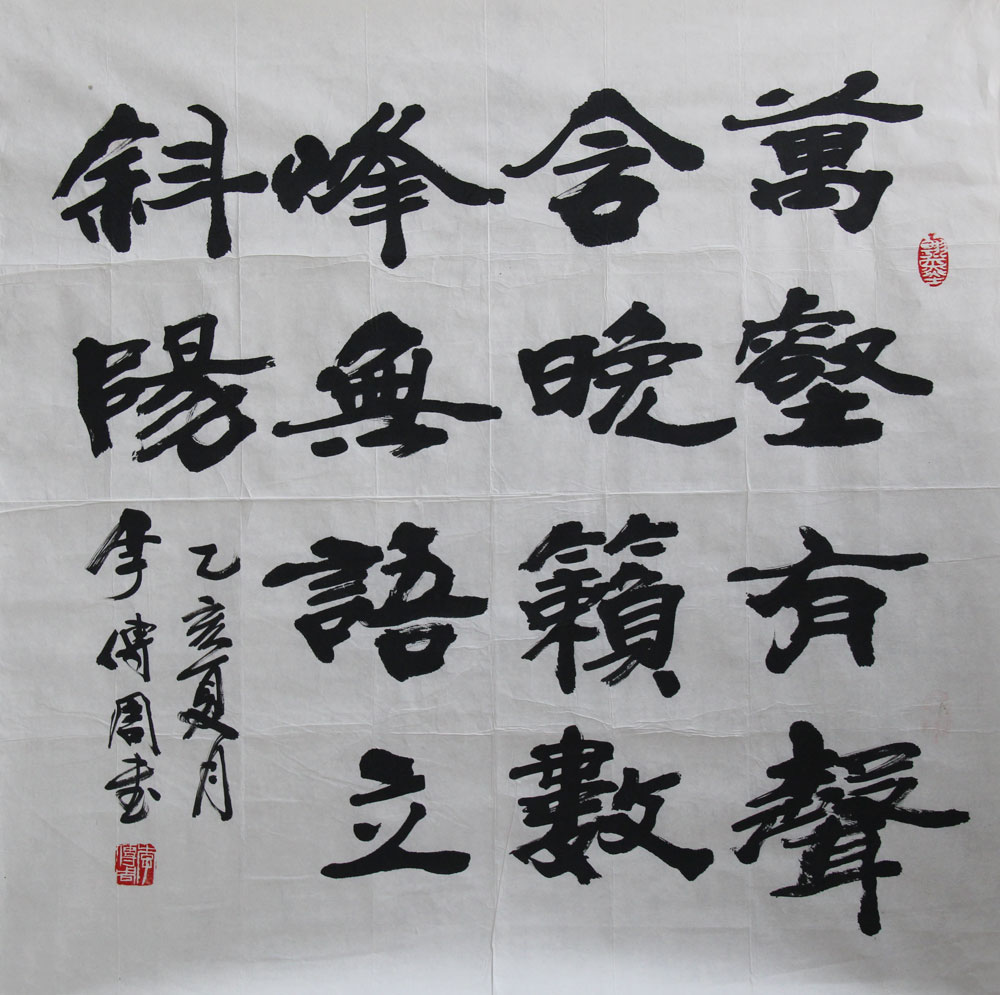 萬壑有聲
含晚籟數
峰無語立
斜陽
乙亥夏月
李傳周書